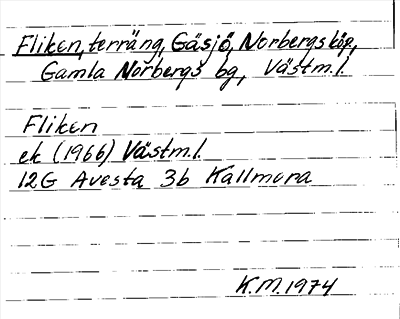 Fliken, terräng, Gäsjö, Norbergs köp,
Gamla Norbergs bg, Västm.l.
Fliken
ek (1966) Västm.l.
12G Avesta 3b Kallmora
K.M. 1974